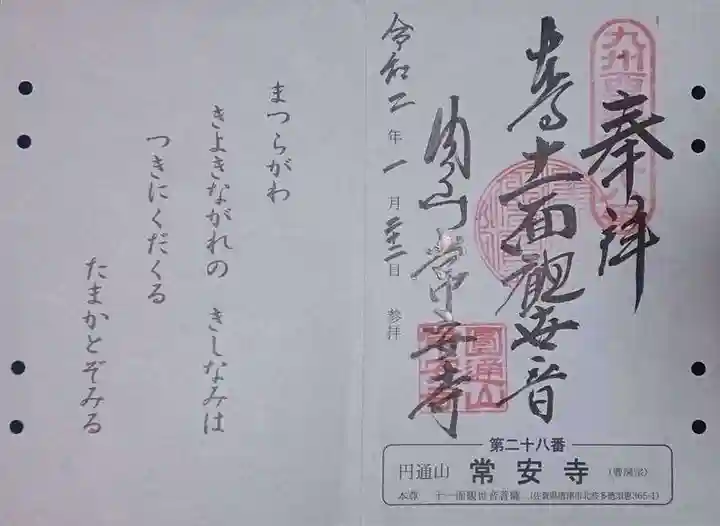 奉拝
十一面観世音
円通山 常安寺
令和二年一月二十二日 参拝
圓通山
常安寺
第二十八番
円通山 常安寺 (曹洞宗)
本尊 十一面観世音菩薩
まつらがわ
きよきながれの きしなみは
つきにくだくる
たまかとぞみる